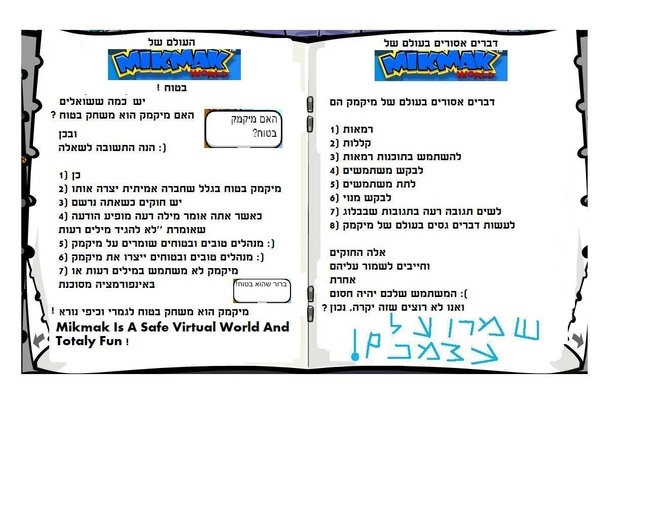 דברים אסורים בעולם של
MIKMAK
WORLD
דברים אסורים בעולם של מיקמק הם
1) רמאות
2) קללות
3) להשתמש בתוכנות רמאות
4) לבקש משתמשים
5) לתת משתמשים
6) לבקש מנוי
7) לשים תגובה רעה בתגובות שבבלוג
8) לעשות דברים גסים בעולם של מיקמק
אלה החוקים
וחייבים לשמור עליהם
אחרת
המשתמש שלכם יהיה חסום :(
ואנו לא רוצים שזה יקרה, נכון ?
שמרו על
עצמכם!
העולם של
MIKMAK
WORLD
בטוח !
יש כמה ששואלים
האם מיקמק הוא משחק בטוח ?
ובכן
הנה התשובה לשאלה :)
האם מיקמק
בטוח?
1) כן
2) מיקמק בטוח בגלל שחברה אמיתית יצרה אותו
3) יש חוקים כשאתה נרשם
4) כאשר אתה אומר מילה רעה מופיע הודעה
שאומרת "לא להגיד מילים רעות
5) מנהלים טובים ובטוחים שומרים על מיקמק :)
6) מנהלים טובים ובטוחים ייצרו את מיקמק :)
7) מיקמק לא משתמש במילים רעות או
באינפורמציה מסוכנת
ברור שהוא בטוח!
מיקמק הוא משחק בטוח לגמרי וכיפי נורא !
Mikmak Is A Safe Virtual World And
Totaly Fun !